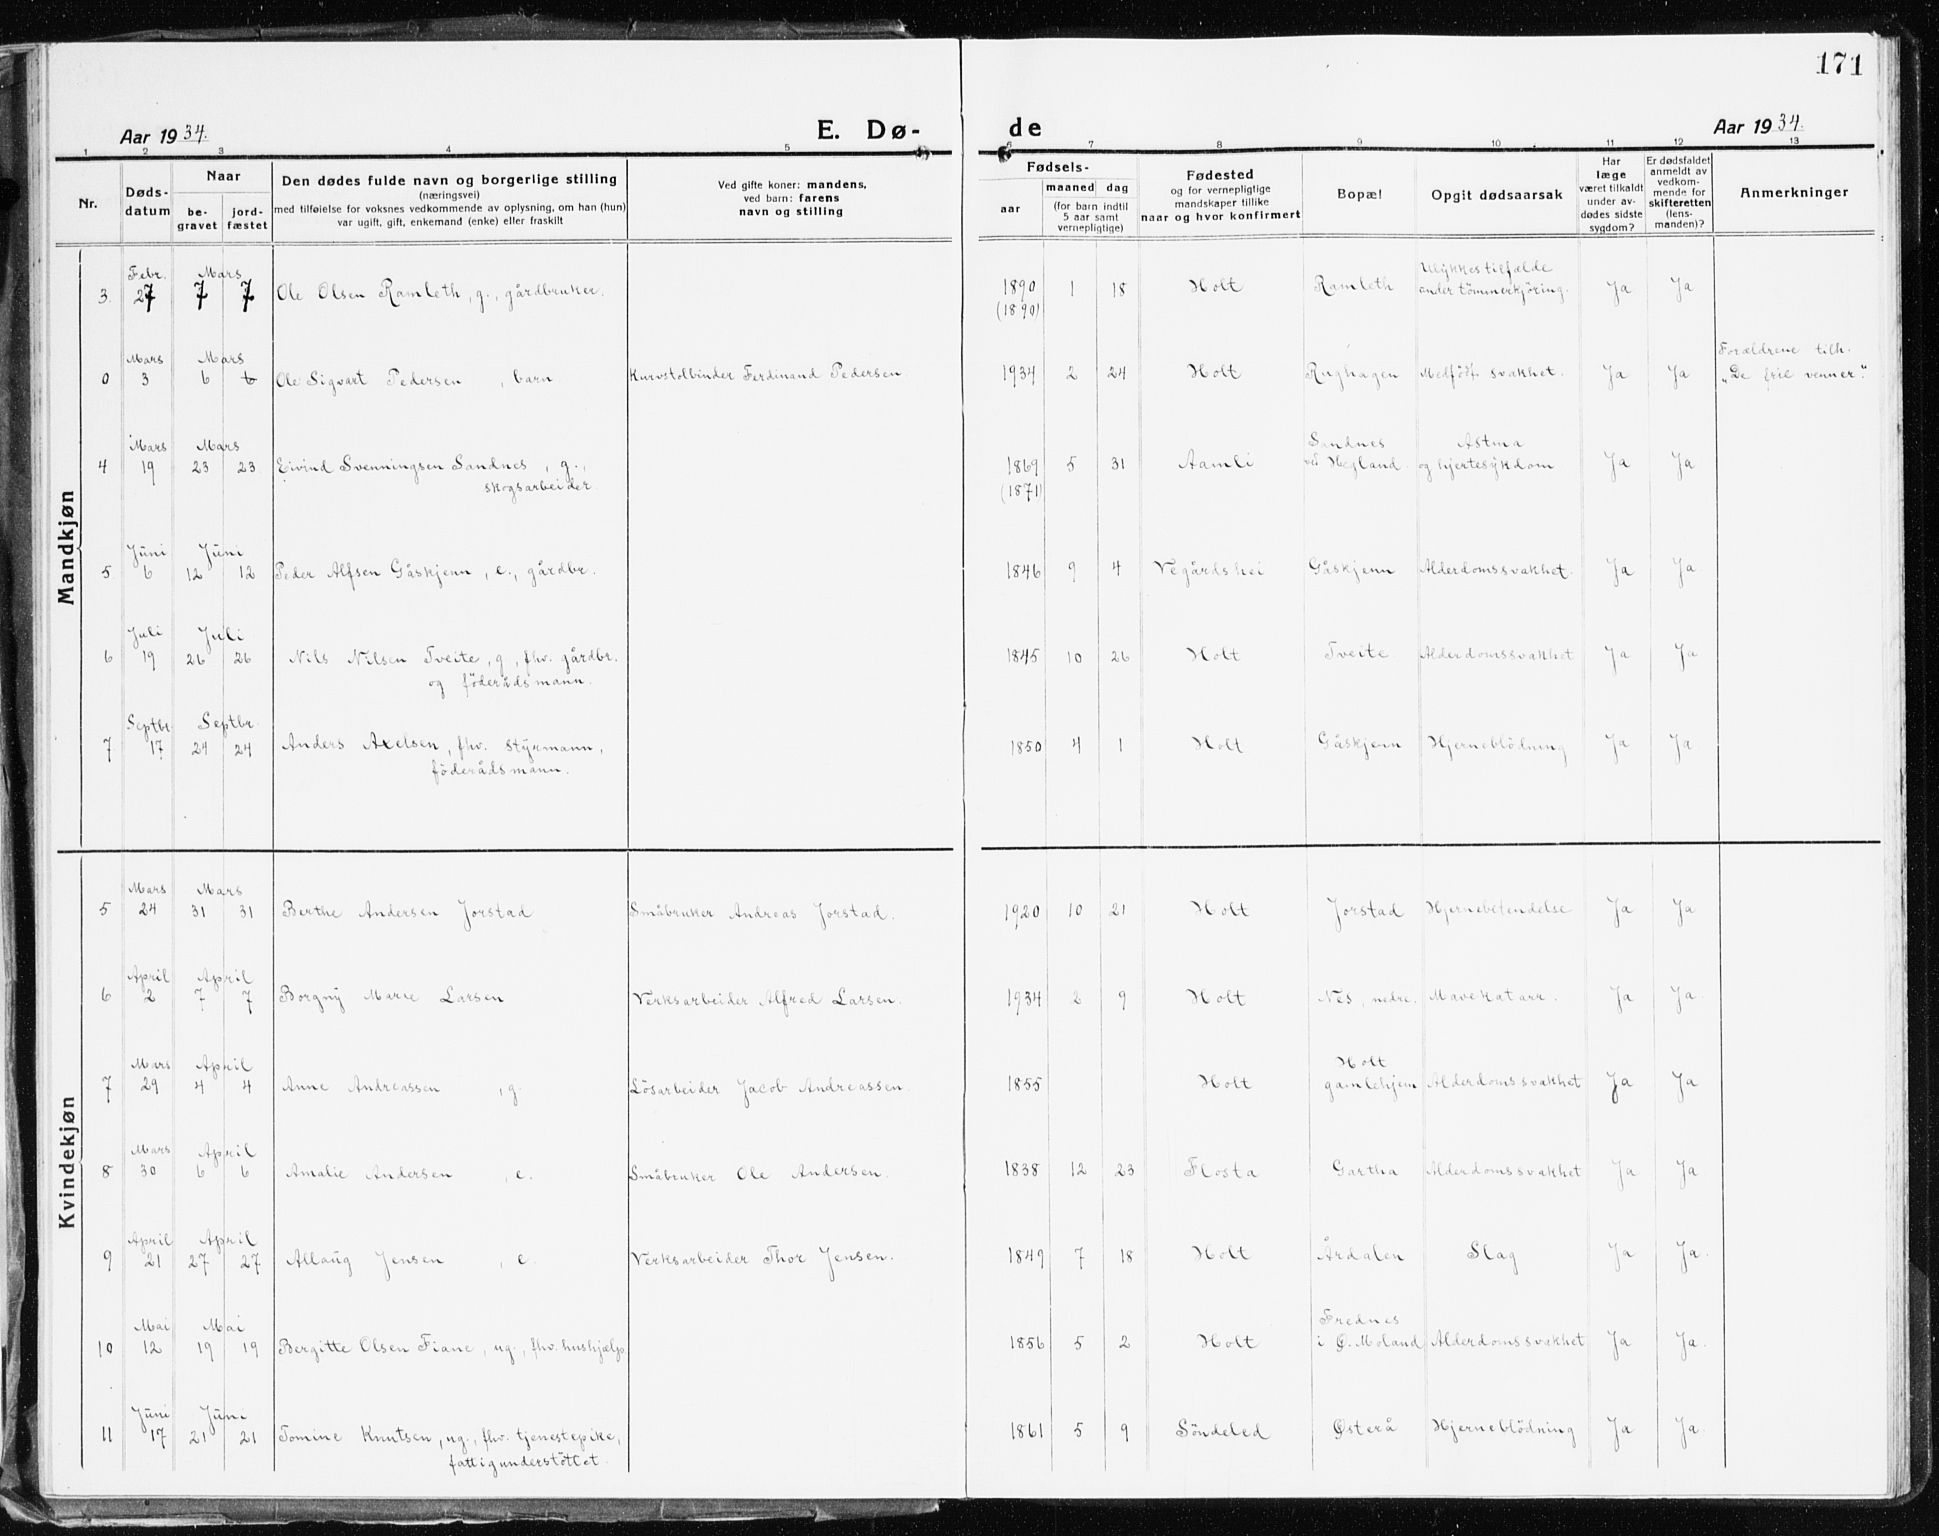 171
Aar 1934. E. Dø- de Aar 1934.
1 2 3 4 5 6 7 8 9 10 11 12 13
Nr. Døds-datum Naar be-gravet jord-fæstet Den dødes fulde navn og borgerlige stilling (næringsvei) med tilføielse for voksnes vedkommende av oplysning, om han (hun) var ugift, gift, enkemand (enke) eller fraskilt Ved gifte koner: mandens, ved barn: farens navn og stilling Fødsels- aar maaned dag (for barn indtil 5 aar samt vernepligtige) Fødested og for vernepligtige mandskaper tillike naar og hvor konfirmert Bopæl Opgit dødsaarsak Har læge været tilkaldt under av-dødes sidste sygdom? Er dødsfaldet anmeldt av vedkom-mende for skifteretten (lens-manden)? Anmerkninger
Mandkjøn
Febr. Mars Ulykkestilfælde
3. 27 7 7 Ole Olsen Ramleth, g., gårdbruker. 1890 1 18 Holt Ramleth under tömmerkjöring. Ja Ja
(1890)
Mars Mars Forældrene tilh.
0 3 6 6 Ole Sigvart Pedersen , barn Kurvstolbinder Ferdinand Pedersen. 1934 2 24 Holt Rughagen Medfödt svakhet. Ja Ja „De frie venner."
Mars Mars Sandnes Astma
4 19 23 23 Eivind Svenningsen Sandnes, g., 1869 5 31 Aamli ved Hegland. og hjertesykdom Ja Ja
skogsarbeider. (1871)
Juni Juni
5 6 12 12 Peder Alfsen Gåskjenn, e., gårdbr. 1846 9 4 Vegårdshei Gåskjenn Alderdomssvakhet. Ja Ja
Juli Juli
6 19 26 26 Nils Nilsen Tveite, g, fhv. gårdbr. 1845 10 26 Holt Tveite Alderdomssvakhet Ja Ja
og föderådsmann.
Septbr. Septbr.
7 17 24 24 Anders Axelsen, fhv. styrmann, 1850 4 1 Holt Gåskjenn Hjerneblödning Ja Ja
föderådsmann.
Kvindekjøn
Mars Mars
5 24 31 31 Berthe Andersen Jorstad Småbruker Andreas Jorstad. 1920 10 21 Holt Jorstad Hjernebetendelse Ja Ja
April April
6 2 7 7 Borgny Marie Larsen Verksarbeider Alfred Larsen. 1934 2 9 Holt Nes, nedre. Mavekatarr. Ja Ja
Mars April Holt
7 29 4 4 Anne Andreassen , g. Lösarbeider Jacob Andreassen. 1855 Holt gamlehjem Alderdomssvakhet Ja Ja
Mars April
8 30 6 6 Amalie Andersen , e. Småbruker Ole Andersen. 1838 12 23 Flosta Gartha Alderdomssvakhet Ja Ja
April April
9 21 27 27 Allaug Jensen , e. Verksarbeider Thor Jensen. 1849 7 18 Holt Årdalen Slag Ja Ja.
Mai Mai Frednes
10 12 19 19 Bergitte Olsen Fiane, ug., fhv. hushjælp. 1856 5 2 Holt i Ø. Moland Alderdomssvakhet Ja Ja.
Juni Juni
11 17 21 21 Tomine Knutsen, ug., fhv. tjenestepike, 1861 5 9 Söndeled Østerå Hjerneblödning Ja Ja.
fattigunderstöttet.